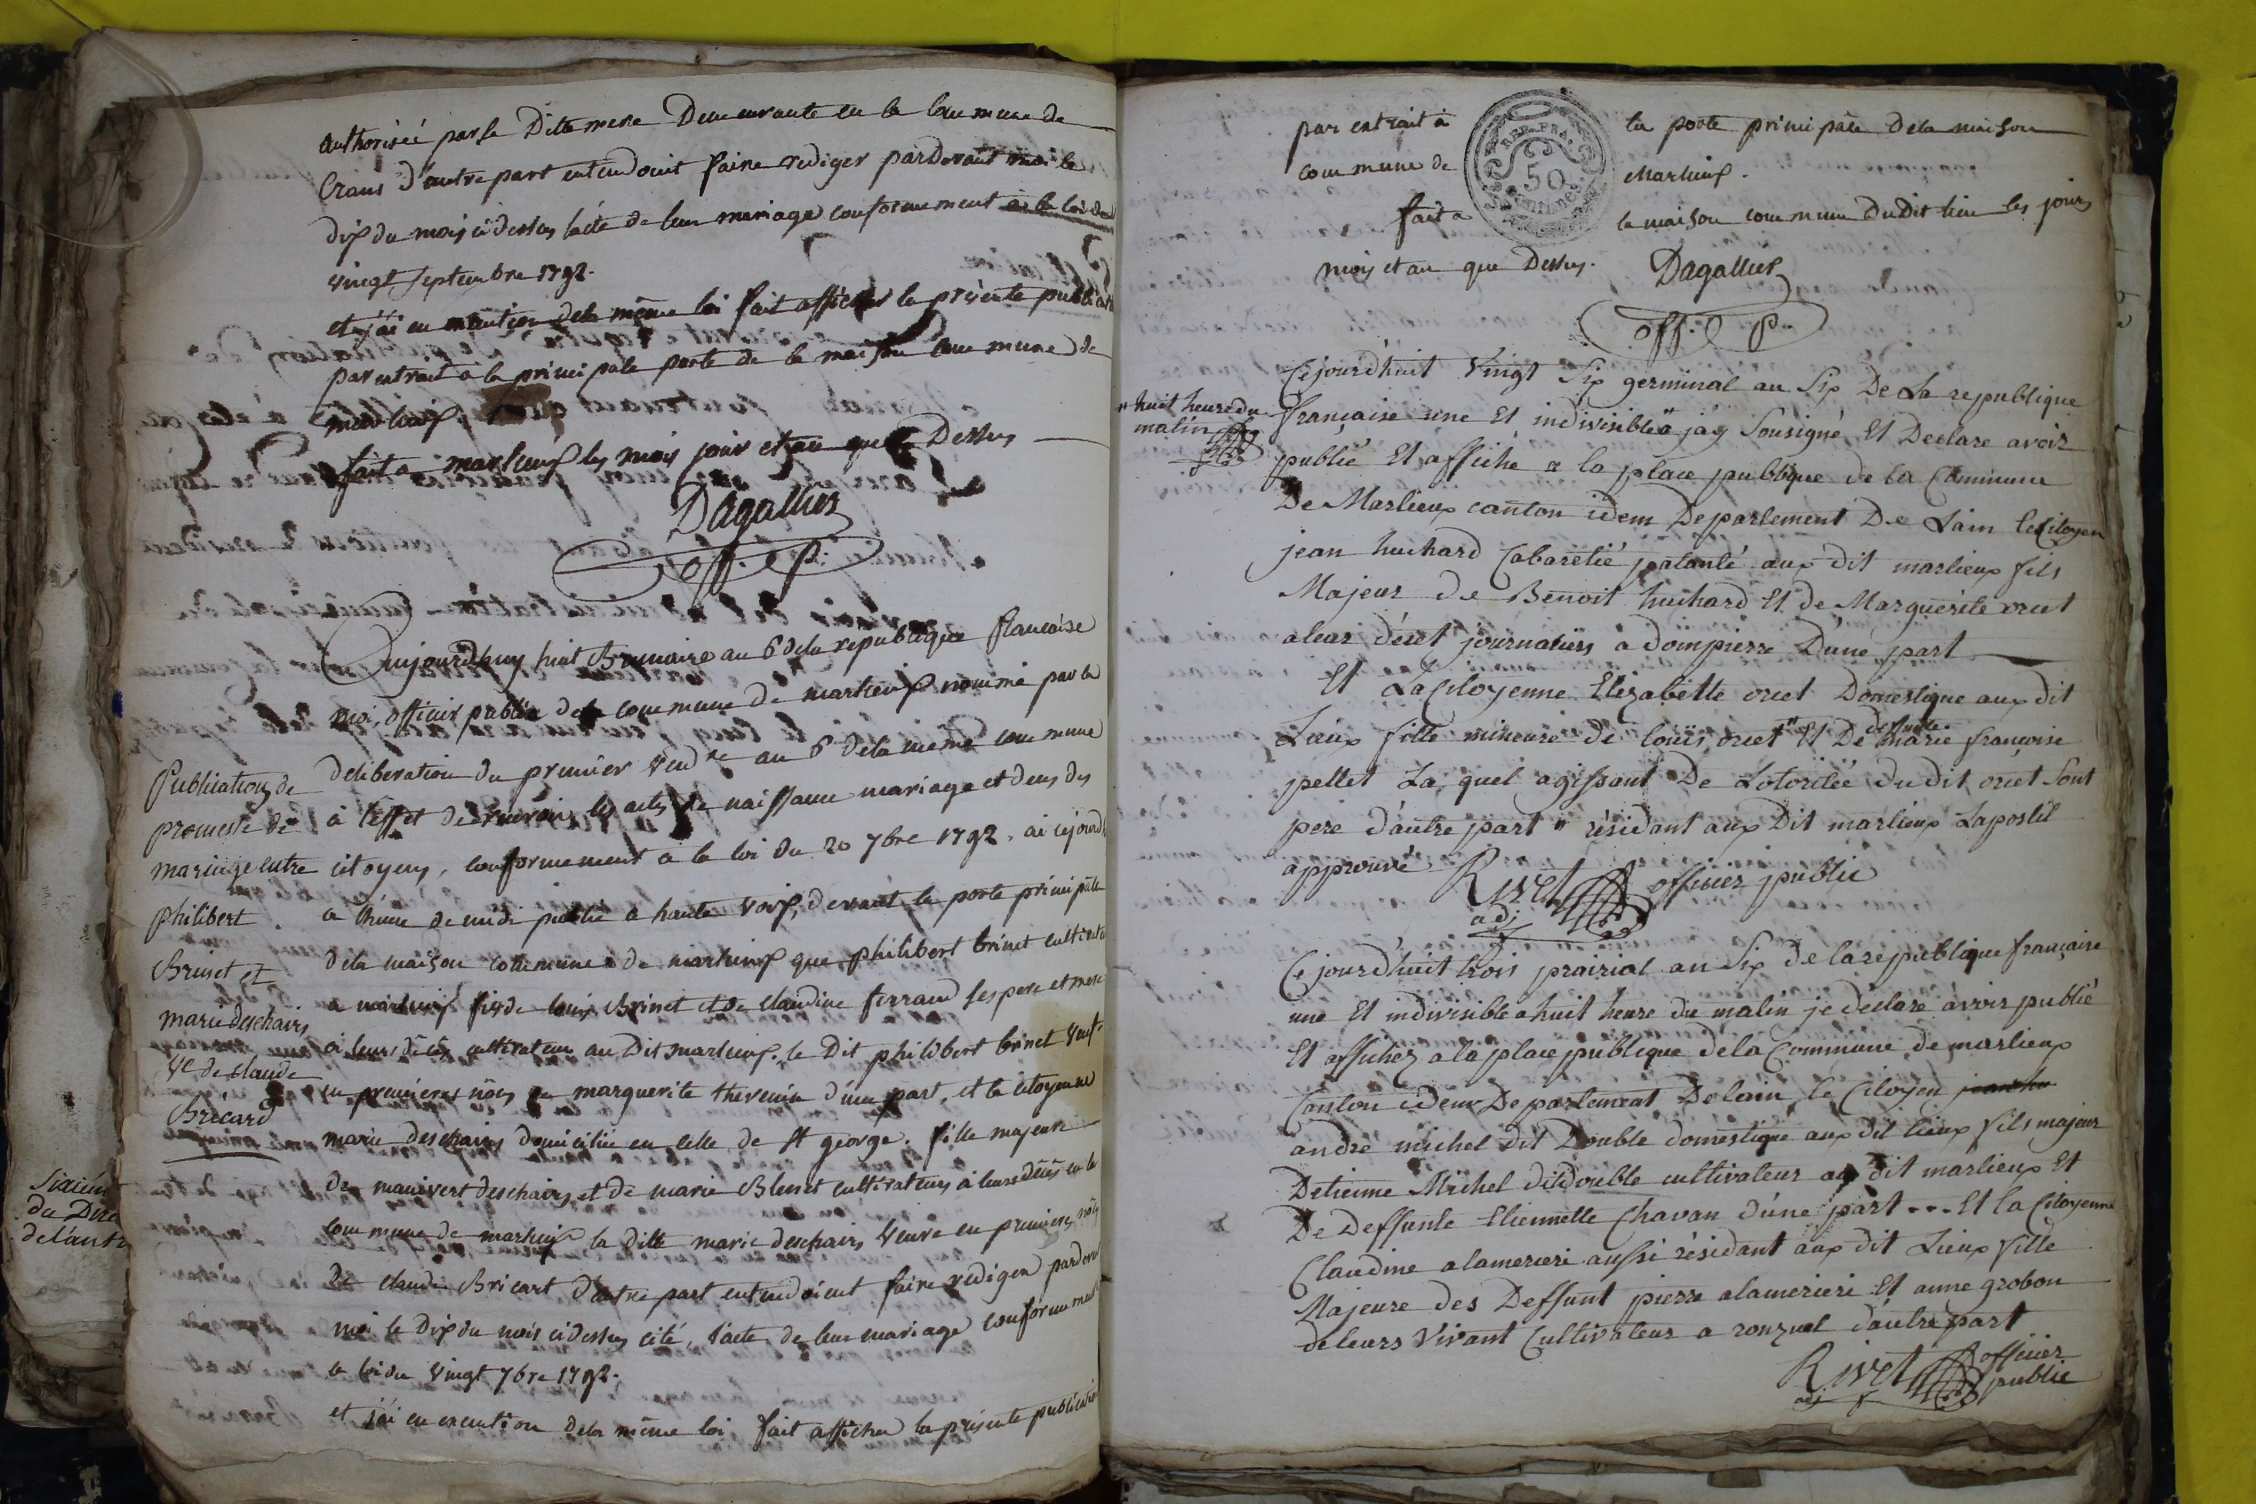 authorisée par sa Ditte mere Demeurante en la Commune de
Crans d'autre part entendoient faire rediger pardevant moi le
dix du mois ci dessus l'acte de leur mariage conformement a la loi du
vingt septembre 1792.
et j'ai en de la même loi fait afficher la présente publication
par extrait à la principale porte de la maison Commune de
marlieux
fait a marlieux les mois jour et an que Dessus
Dagallier
off. P.
Aujourdhuy huit Brumaire an 6 de la republique francaise
moi officier public de la commune de marlieux nommé par la
deliberation du premier vend re an 6 de la même commune
à l'effet de recevoir les actes de naissance mariage et deces des
citoyens, conformement a la loi du 20 7bre 1792. ai cejourd
a l'heure de midi publié a haute voix, devant la porte principale
de la maison commune de marlieux que philibert brinet
a marlieux fils de louis Brinet et de claudine ferrand ses pere et mere
à leurs décès cultivateurs au Dit marlieux. le Dit philibert brinet veuf
en premieres nôces de marguerite thevenin d'une part, et la citoyenne
marie deschairs domiciliée en celle de st george. fille majeure
de deschairs et de marie Blenet cultivateurs à leurs décès en la
commune de marlieux la ditte marie deschairs veuve en premieres nôces
de claude Bricart d'autre part entendoient faire rediger pardevant
moi le Dix du mois ci dessus cité, l'acte de leur mariage conformement
a loi du vingt 7bre 1792.
et j'ai en execution de la même loi fait afficher la présente publication
Publication de
promesse de
mariage entre
philibert
Brinet et
marie deschairs
Ve de claude
Bricard
par extrait à la porte principale de la maison
commune de Marlieux.
fait a la maison commune du Dit lieu les jour
mois et an que Dessus. Dagallier
off. P.
REP. FRA.
50
Centimes
Cejourdhuit vingt six germinal an six De La republique
française une Et indivisible " jay Sousigné Et Declare avoir
publié Et affiché a la place publique de la Commune
De Marlieux canton idem Departement De Lain le Citoyen
jean huchard Cabaretié patanté aux dit marlieux fils
Majeur de Benoit huchard Et de Marguerite vret
aleur décet journaliers a dompierre D'une part
Et La Citoyenne Elizabette oriet Domestique aux dit
Lieux fille mineure de Louis oriet " Et De deffunte marie françoise
pellet La quel agissant De Lotoritée du dit oriet Sont
pere d'autre part " résidant aux Dit marlieux Lapostil
approuvé Rivet officier public
adj
" huit heure du
matin
Ce jourdhuit trois prairial an Six de la republique française
une Et indivisible a huit heure du matin je déclare avoir publié
Et affichez a la place publique de la Commune de marlieux
Canton idem Departement De lain le Citoyen
andré michel dit Double domestique aux dit lieux fils majeur
Detienne Michel dit double cultivateur au dit marlieux Et
De Deffunte Etiennette Chavan d'une part ... Et la Citoyenne
Claudine alamerieri aussi résidant aux dit Lieux fille
Majeure des Deffunt pierre alamerieri Et anne grobon
de leurs vivant Cultivateur a ronzuel d'autre part
Rivet officier
adj public